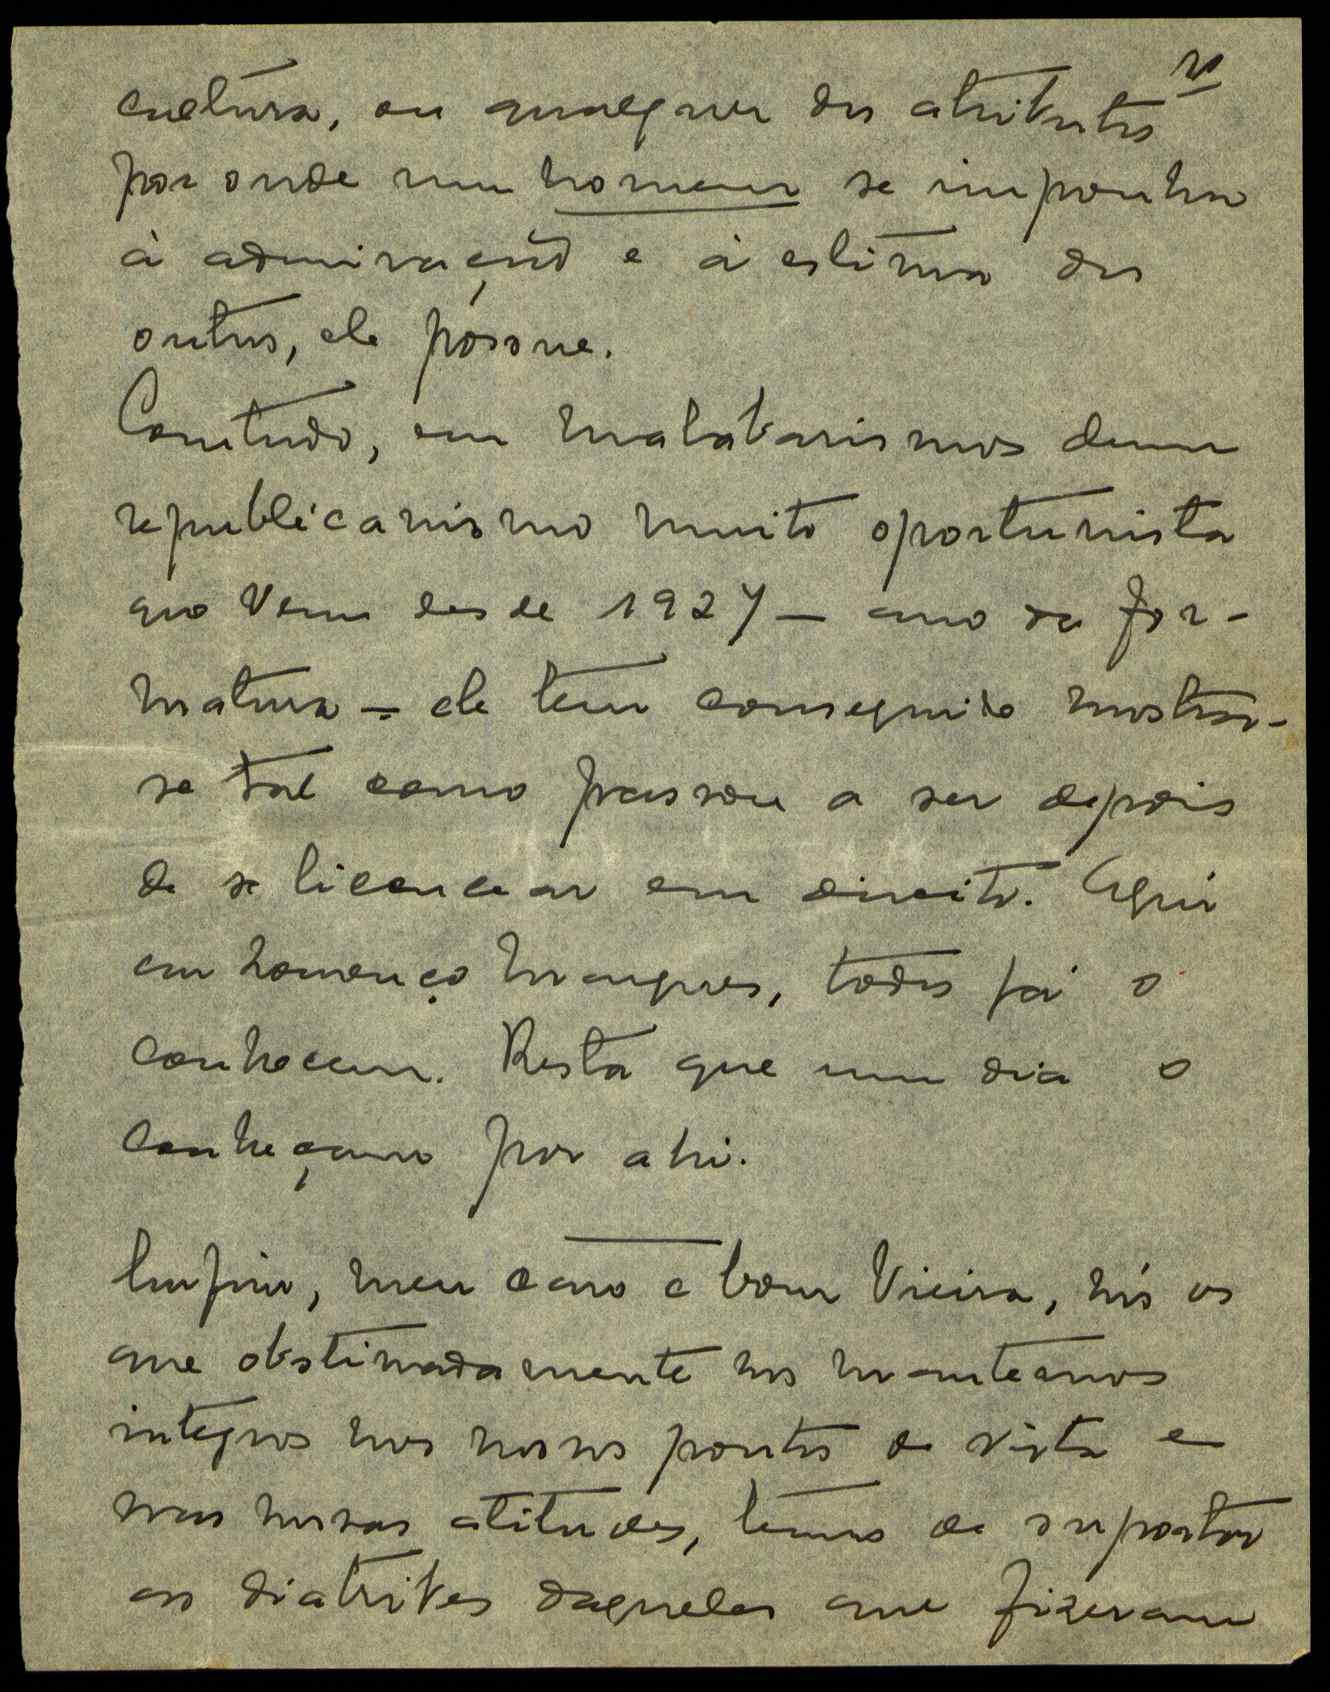 cultura, ou qualquer dos atributos
por onde um homem se imponha
à admiração e à estima dos
outros, ele póssue.
Comtudo, em malabarismos dum
republicanismo muito oportunista
que vem desde 1927 — ano da for-
matura — ele tem conseguido mostrar-
se tal como passou a ser depois
de se licencear em direito. Aqui
em Lourenço Marques, todos já o
conhecem. Resta que um dia o
conheçam por ahi.
Emfim, meu caro e bom Vieira, nós os
que obstinadamente nos manteemos
integros nos nossos pontos de vista e
nas nossas atitudes, temos de suportar
as diatribes daqueles que fizeram